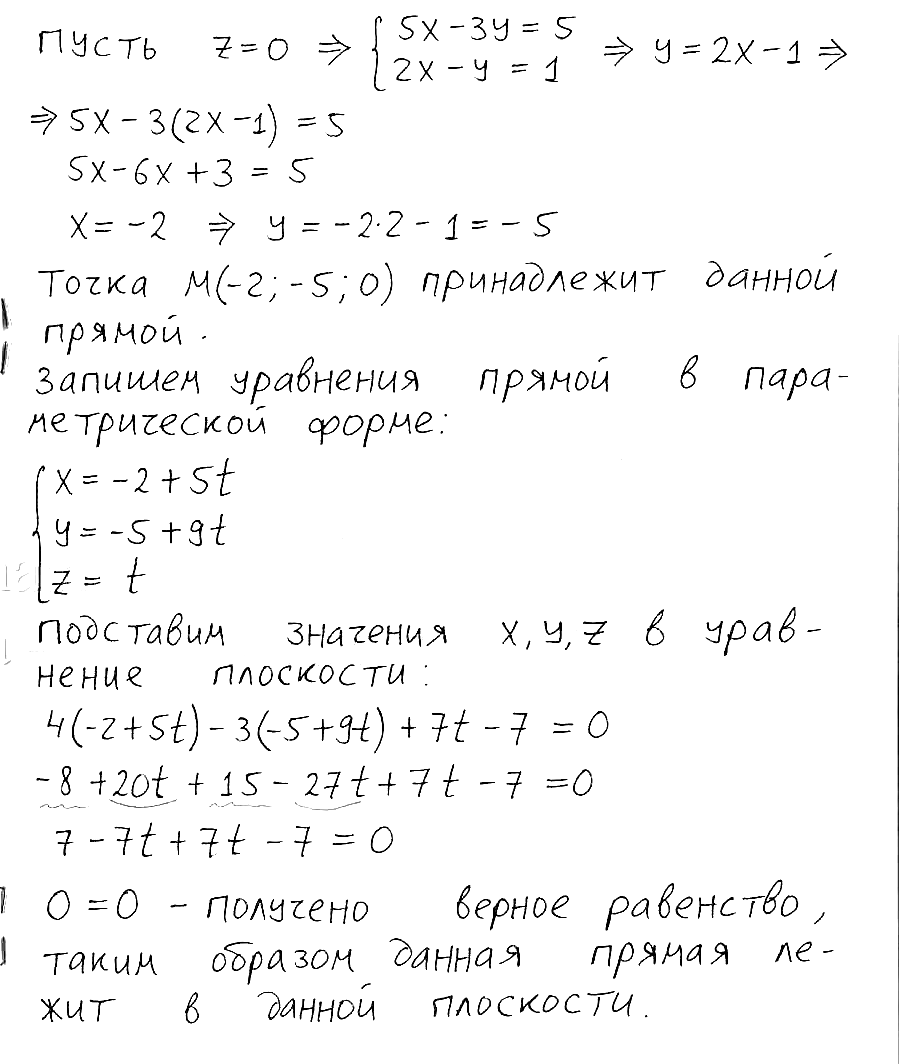 Пусть z=0 ⇒ { 5x-3y=5
2x-y=1 ⇒ y=2x-1 ⇒
⇒ 5x-3(2x-1)=5
5x-6x+3=5
x=-2 ⇒ y=-2·2-1=-5
Точка M(-2;-5;0) принадлежит данной
прямой.
Запишем уравнения прямой в пара-
метрической форме:
{ x=-2+5t
y=-5+9t
z= t
Подставим значения x,y,z в урав-
нение плоскости:
4(-2+5t)-3(-5+9t)+7t-7=0
-8+20t+15-27t+7t-7=0
7-7t+7t-7=0
0=0 - получено верное равенство,
таким образом данная прямая ле-
жит в данной плоскости.